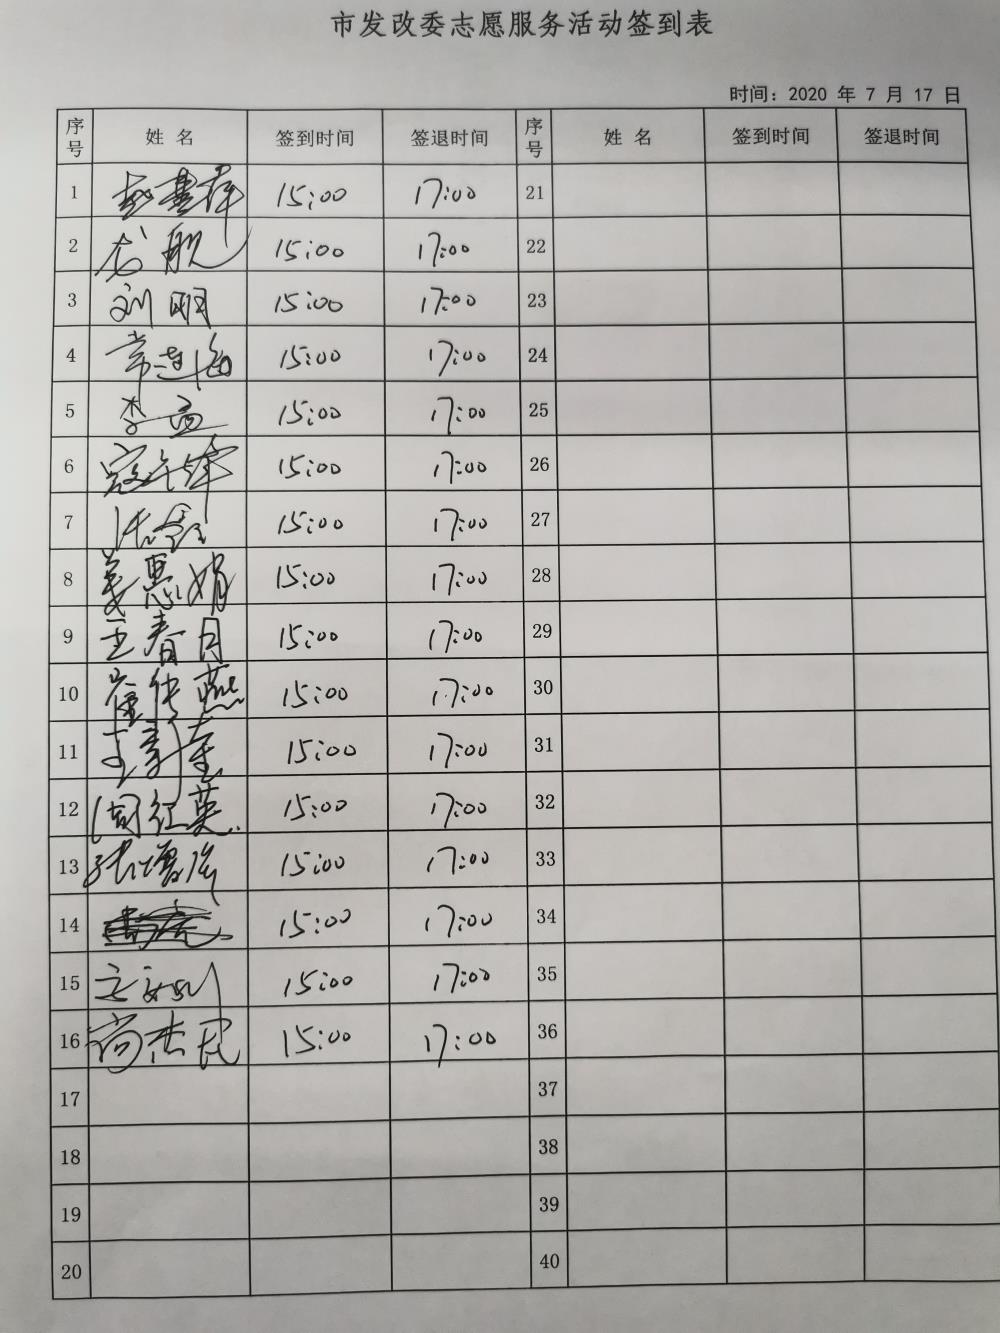 市发改委志愿服务活动签到表
时间：2020 年 7 月 17 日
序号 姓 名 签到时间 签退时间 序号 姓 名 签到时间 签退时间
1 15:00 17:00 21
2 龙舰 15:00 17:00 22
3 刘明 15:00 17:00 23
4 常连海 15:00 17:00 24
5 15:00 17:00 25
6 15:00 17:00 26
7 15:00 17:00 27
8 姜惠娟 15:00 17:00 28
9 王春月 15:00 17:00 29
10 崔传燕 15:00 17:00 30
11 15:00 17:00 31
12 周红英 15:00 17:00 32
13 张增岸 15:00 17:00 33
14 15:00 17:00 34
15 15:00 17:00 35
16 尚杰民 15:00 17:00 36
17 37
18 38
19 39
20 40